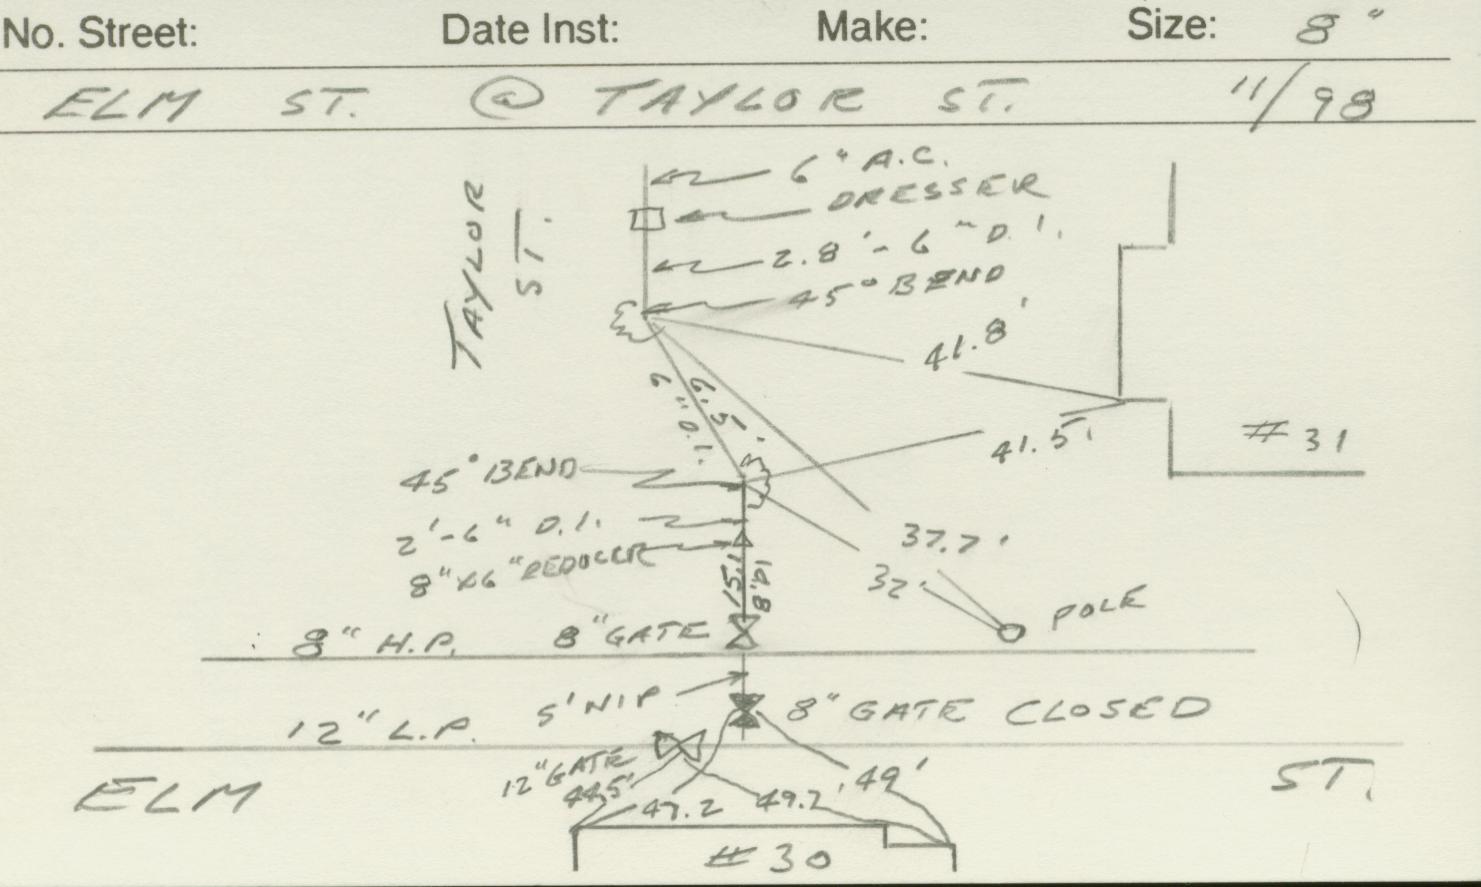 No. Street: Date Inst: Make: Size: 8"
ELM ST. @ TAYLOR ST. 11/98
6" A.C.
DRESSER
TAYLOR ST.
2.8' - 6" D.I.
45° BEND
41.8'
6.5'
6" D.I.
41.5'
#31
45° BEND
2' - 6" D.I.
8" X6" REDUCER
15.1
8" DI
37.7'
32'
POLE
8" H.P. 8" GATE
5' NIP
12" L.P. 8" GATE CLOSED
12" GATE
ELM ST.
44.5' 47.2 49.2' 49'
#30